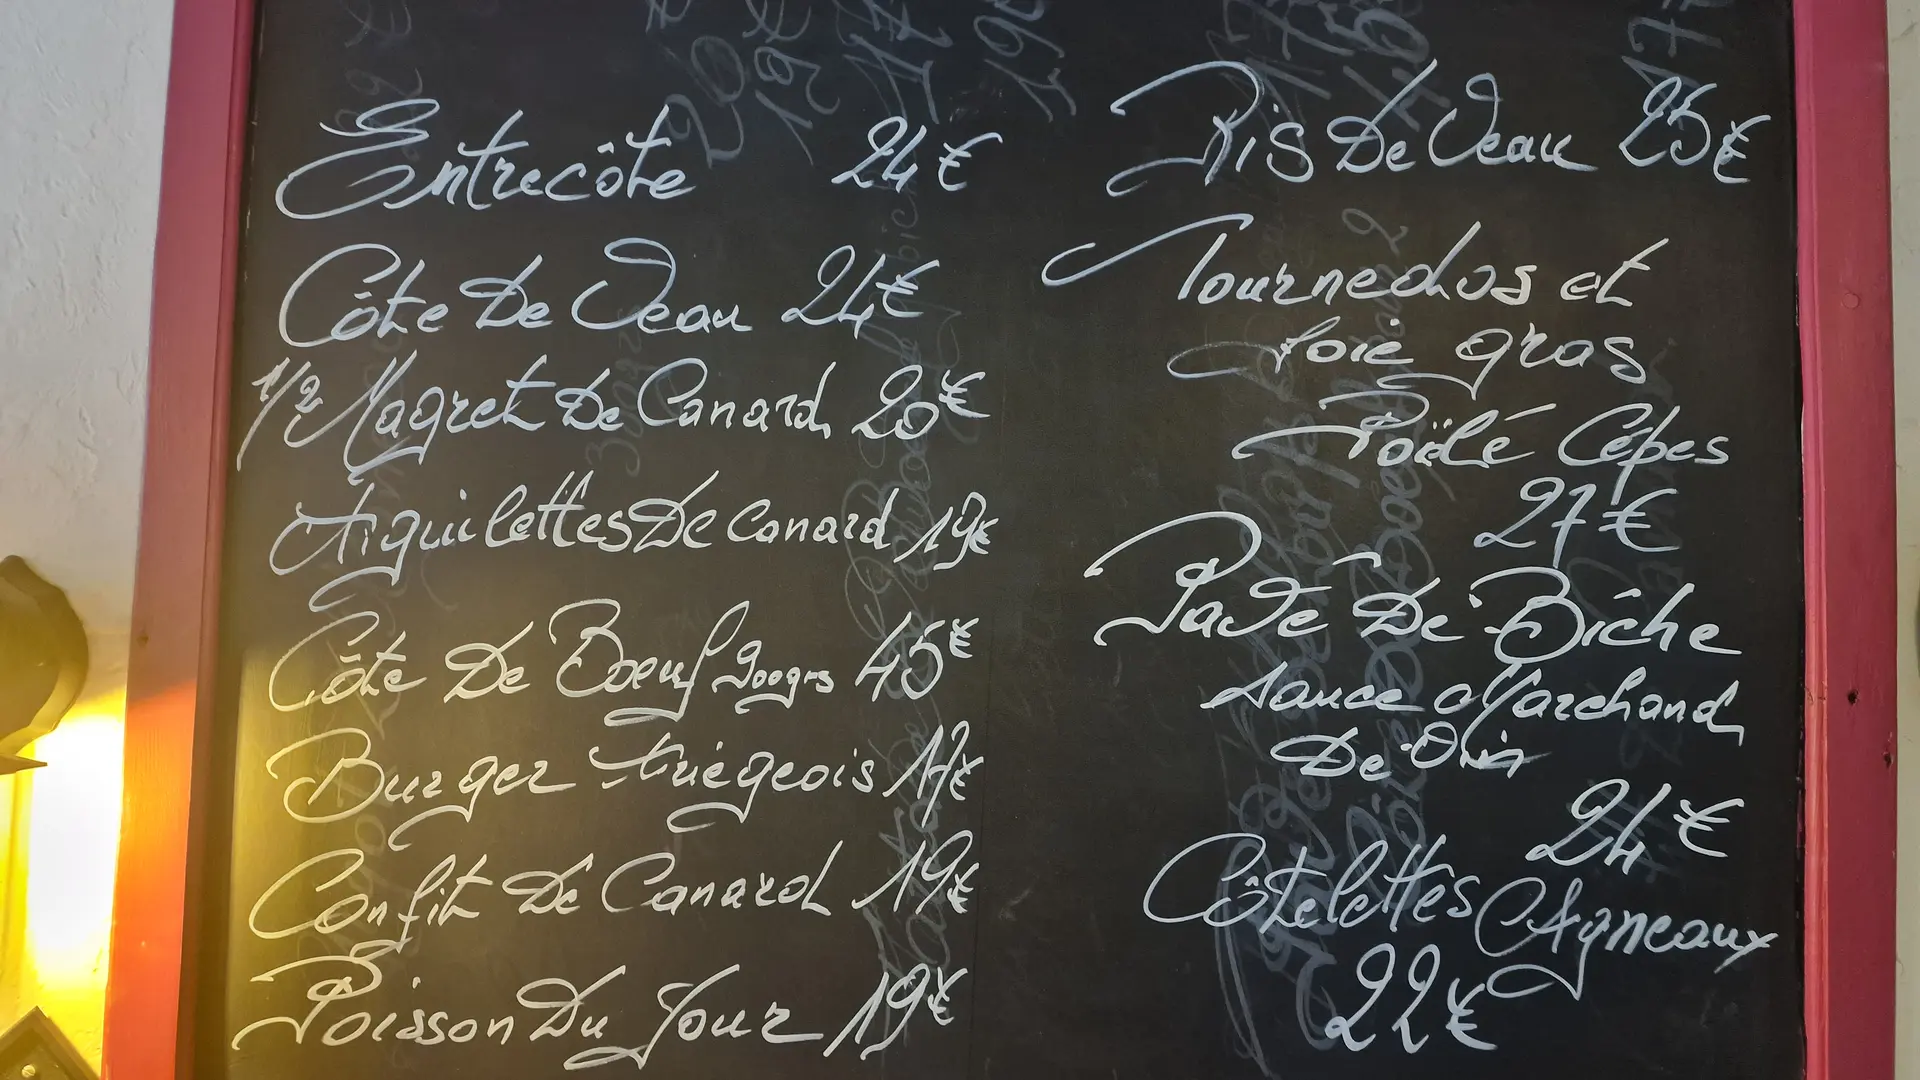 Entrecôte 24€
Côte De Veau 24€
1/2 Magret De Canard 20€
Aiguilettes De Canard 19€
Côte De Boeuf 900grs 45€
Burger Ariégeois 17€
Confit De Canard 19€
Poisson Du Jour 19€
Ris De Veau 25€
Tournedos et
foie gras
Poëlé Cêpes
27€
Pavé De Biche
sauce Marchand
De Vin
24€
Côtelettes Agneaux
22€